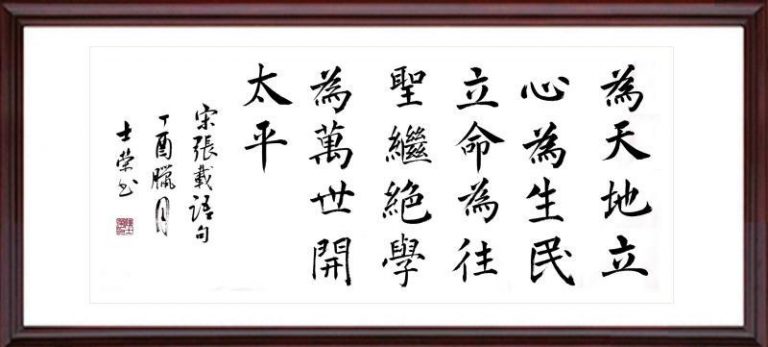 為天地立
心為生民
立命為往
聖繼絕學
為萬世開
太平
宋張載語句
丁酉臘月
士荣书